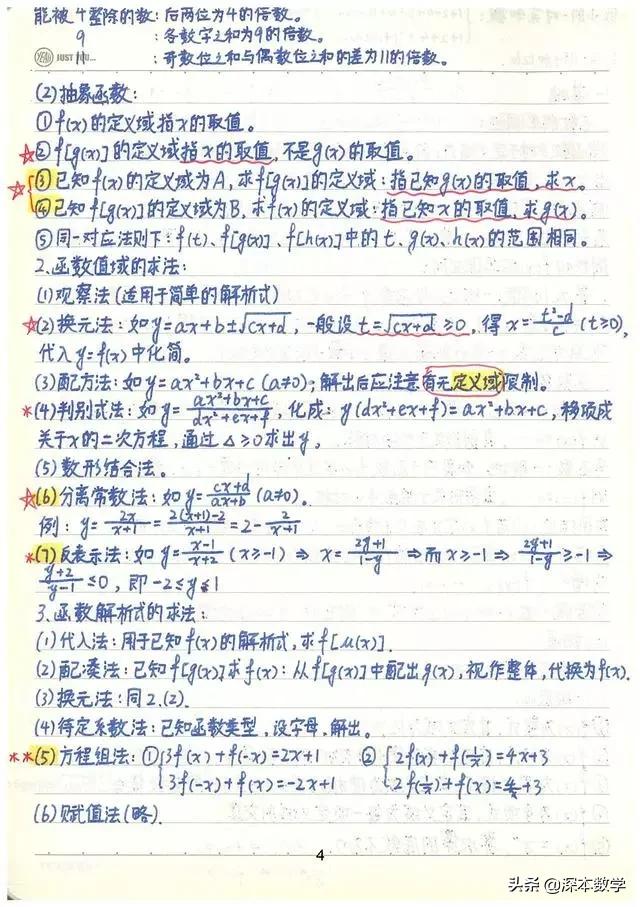 能被4整除的数:后两位为4的倍数。
9 :各数字之和为9的倍数。
JUST YOU... 11 :奇数位之和与偶数位之和的差为11的倍数。
(2)抽象函数:
①f(x)的定义域指x的取值。
②f[g(x)]的定义域指x的取值,不是g(x)的取值。
③已知f(x)的定义域为A,求f[g(x)]的定义域:指已知g(x)的取值,求x。
④已知f[g(x)]的定义域为B,求f(x)的定义域:指已知x的取值,求g(x)。
⑤同一对应法则下:f(t)、f[g(x)]、f[h(x)]中的t、g(x)、h(x)的范围相同。
2.函数值域的求法:
(1)观察法(适用于简单的解析式)
(2)换元法:如y=ax+b±√(cx+d),一般设t=√(cx+d)≥0,得x=(t²-d)/c(t≥0),
代入y=f(x)中化简。
(3)配方法:如y=ax²+bx+c(a≠0);解出后应注意有无定义域限制。
(4)判别式法:如y=(ax²+bx+c)/(dx²+ex+f),化成:y(dx²+ex+f)=ax²+bx+c,移项成
关于x的二次方程,通过△≥0求出y。
(5)数形结合法。
(6)分离常数法:如y=(cx+d)/(ax+b)(a≠0)。
例:y=2x/(x+1)=(2(x+1)-2)/(x+1)=2-2/(x+1)
(7)反表示法:如y=(x-1)/(x+2)(x≥-1)⇒x=(2y+1)/(1-y)⇒而x≥-1⇒(2y+1)/(1-y)≥-1⇒
(y+2)/(y-1)≤0,即-2≤y<1
3.函数解析式的求法:
(1)代入法:用于已知f(x)的解析式,求f[μ(x)].
(2)配凑法:已知f[g(x)]求f(x):从f[g(x)]中配出g(x),视作整体,代换为f(x).
(3)换元法:同2.(2).
(4)待定系数法:已知函数类型,设字母,解出。
(5)方程组法:①{3f(x)+f(-x)=2x+1 ②{2f(x)+f(1/x)=4x+3
3f(-x)+f(x)=-2x+1 2f(1/x)+f(x)=4/x+3
(6)赋值法(略).
4
头条@深本数学